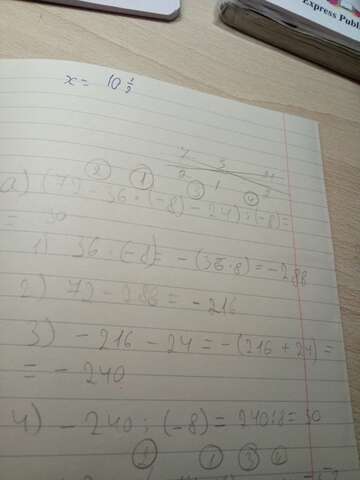 Express Publ
x = 10 1/2
② ① ③ ④
a) (72 - 36 · (-8) - 24) : (-8) =
= 30
1) 36 · (-8) = -(36 · 8) = -288
2) 72 - 288 = -216
3) - 216 - 24 = -(216 + 24) =
= - 240
4) - 240 : (-8) = 240 : 8 = 30
② ① ③ ④